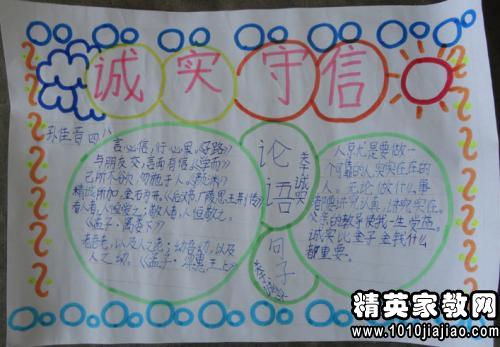 诚实守信
孙佳音 四八
言必信,行必果。《子路》
与朋友交,言而有信。《学而》
己所不欲,勿施于人。《颜渊》
精诚所加,金石为开。《后汉·广陵思王荆传》
爱人者,人恒爱之;敬人者,人恒敬之。
《孟子·离娄下》
老吾老,以及人之老;幼吾幼,以及
人之幼。《孟子·梁惠王上》
论语
类诚实
句子
人总是要做一
个
的人,实实在在的
人。无论做什么事
都
讲实在。
父亲的教导使我一生受益。
诚实比金子金钱什么
都重要。
精英家教网
www.1010jiajiao.com